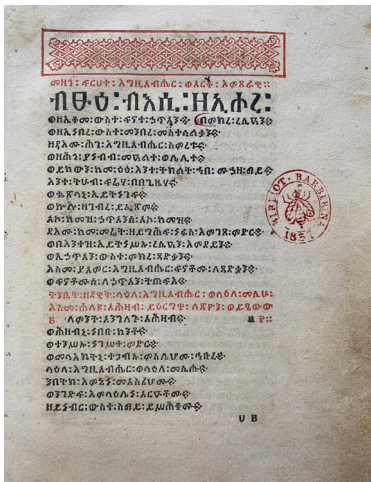 ብፁዕ፡ብእሲ፡ዘኢሖረ፡
ወዘኢቆመ፡ውስተ፡ፍኖተ፡ኃጥኣን፨ በምክረ፡ረሲዓን፨
ወዘኢነበረ፡ውስተ፡መንበረ፡መስተሳልቃን፨
ዘዳእሙ፡ሕገ፡እግዚአብሔር፡ሥምረቱ፨
ወዘሕጎ፡ያነብብ፡መዓልተ፡ወሌሊተ፨
ወይከውን፡ከመ፡ዕፅ፡እንተ፡ትክልት፡ኀበ፡ሙሓዘ፡ማይ፨
እንተ፡ትሁብ፡ፍሬሃ፡በበጊዜሃ፨
ወቈጽላኒ፡ኢይትነገፍ፨
ወኵሎ፡ዘገብረ፡ይፌጽም፨
አኮ፡ከመዝ፡ኃጥኣንሰ፡አኮ፡ከመዝ፨
ዳእሙ፡ከመ፡መሬት፡ዘይግሕፍ፡ነፋስ፡እምገጸ፡ምድር፨
ወበእንተዝ፡ኢይትነሥኡ፡ረሲዓን፡እምደይን፨
ወኢኃጥኣን፡ውስተ፡ምክረ፡ጻድቃን፨
እስመ፡ያአምር፡እግዚአብሔር፡ፍኖቶሙ፡ለጻድቃን፨
ወፍኖቶሙሰ፡ለኃጥኣን፡ትጠፍእ፨
ትንቢት፡ዘዳዊት፡ላዕለ፡እግዚአብሔር፡ወላዕለ፡መሲሑ፡
ለምንት፡አንገለጉ፡አሕዛብ፨
ወሕዝብኒ፡ነበቡ፡ከንቶ፨
ወተንሥኡ፡ነገሥተ፡ምድር፨
ወመላእክትኒ፡ተጋብኡ፡ምስሌሆሙ፡ኅቡረ፨
ላዕለ፡እግዚአብሔር፡ወላዕለ፡መሲሑ፨
ንበትክ፡እምኔነ፡መኣስሪሆሙ፨
ወንገድፍ፡እምላዕሌነ፡አርዑቶሙ፨
ዘይነብር፡ውስተ፡ሰማይ፡ይሥሕቆሙ፨
BIBLIOT·BARBERINA·